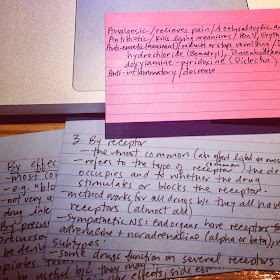 Analgesic / relieves pain / Acetylsalicylic a
Antibiotic / kills living organisms / Pen V, Eryth
Anti-emetic / reduces or stops vomiting /
hydrochloride (Benadryl), Dimenhydrinat
doxylamine-pyridoxine (Diclectin)
Anti-inflammatory / decrease
3. By receptor
- the most common (
- refers to the type of receptor the dr
occupies and to whether the drug
stimulates or blocks the receptor.
- method works for all drugs b/c they all have
receptors (almost all)
- Sympathetic NS: End organs have receptors fo
adrenaline + noradrenaline (alpha or beta)
Subtypes:
- some drugs function on several receptors
be useful b/c they may
effects side e
By effec
- most co
- e.g. "blo
- not very u
drug inte
By precur
precursor
be den